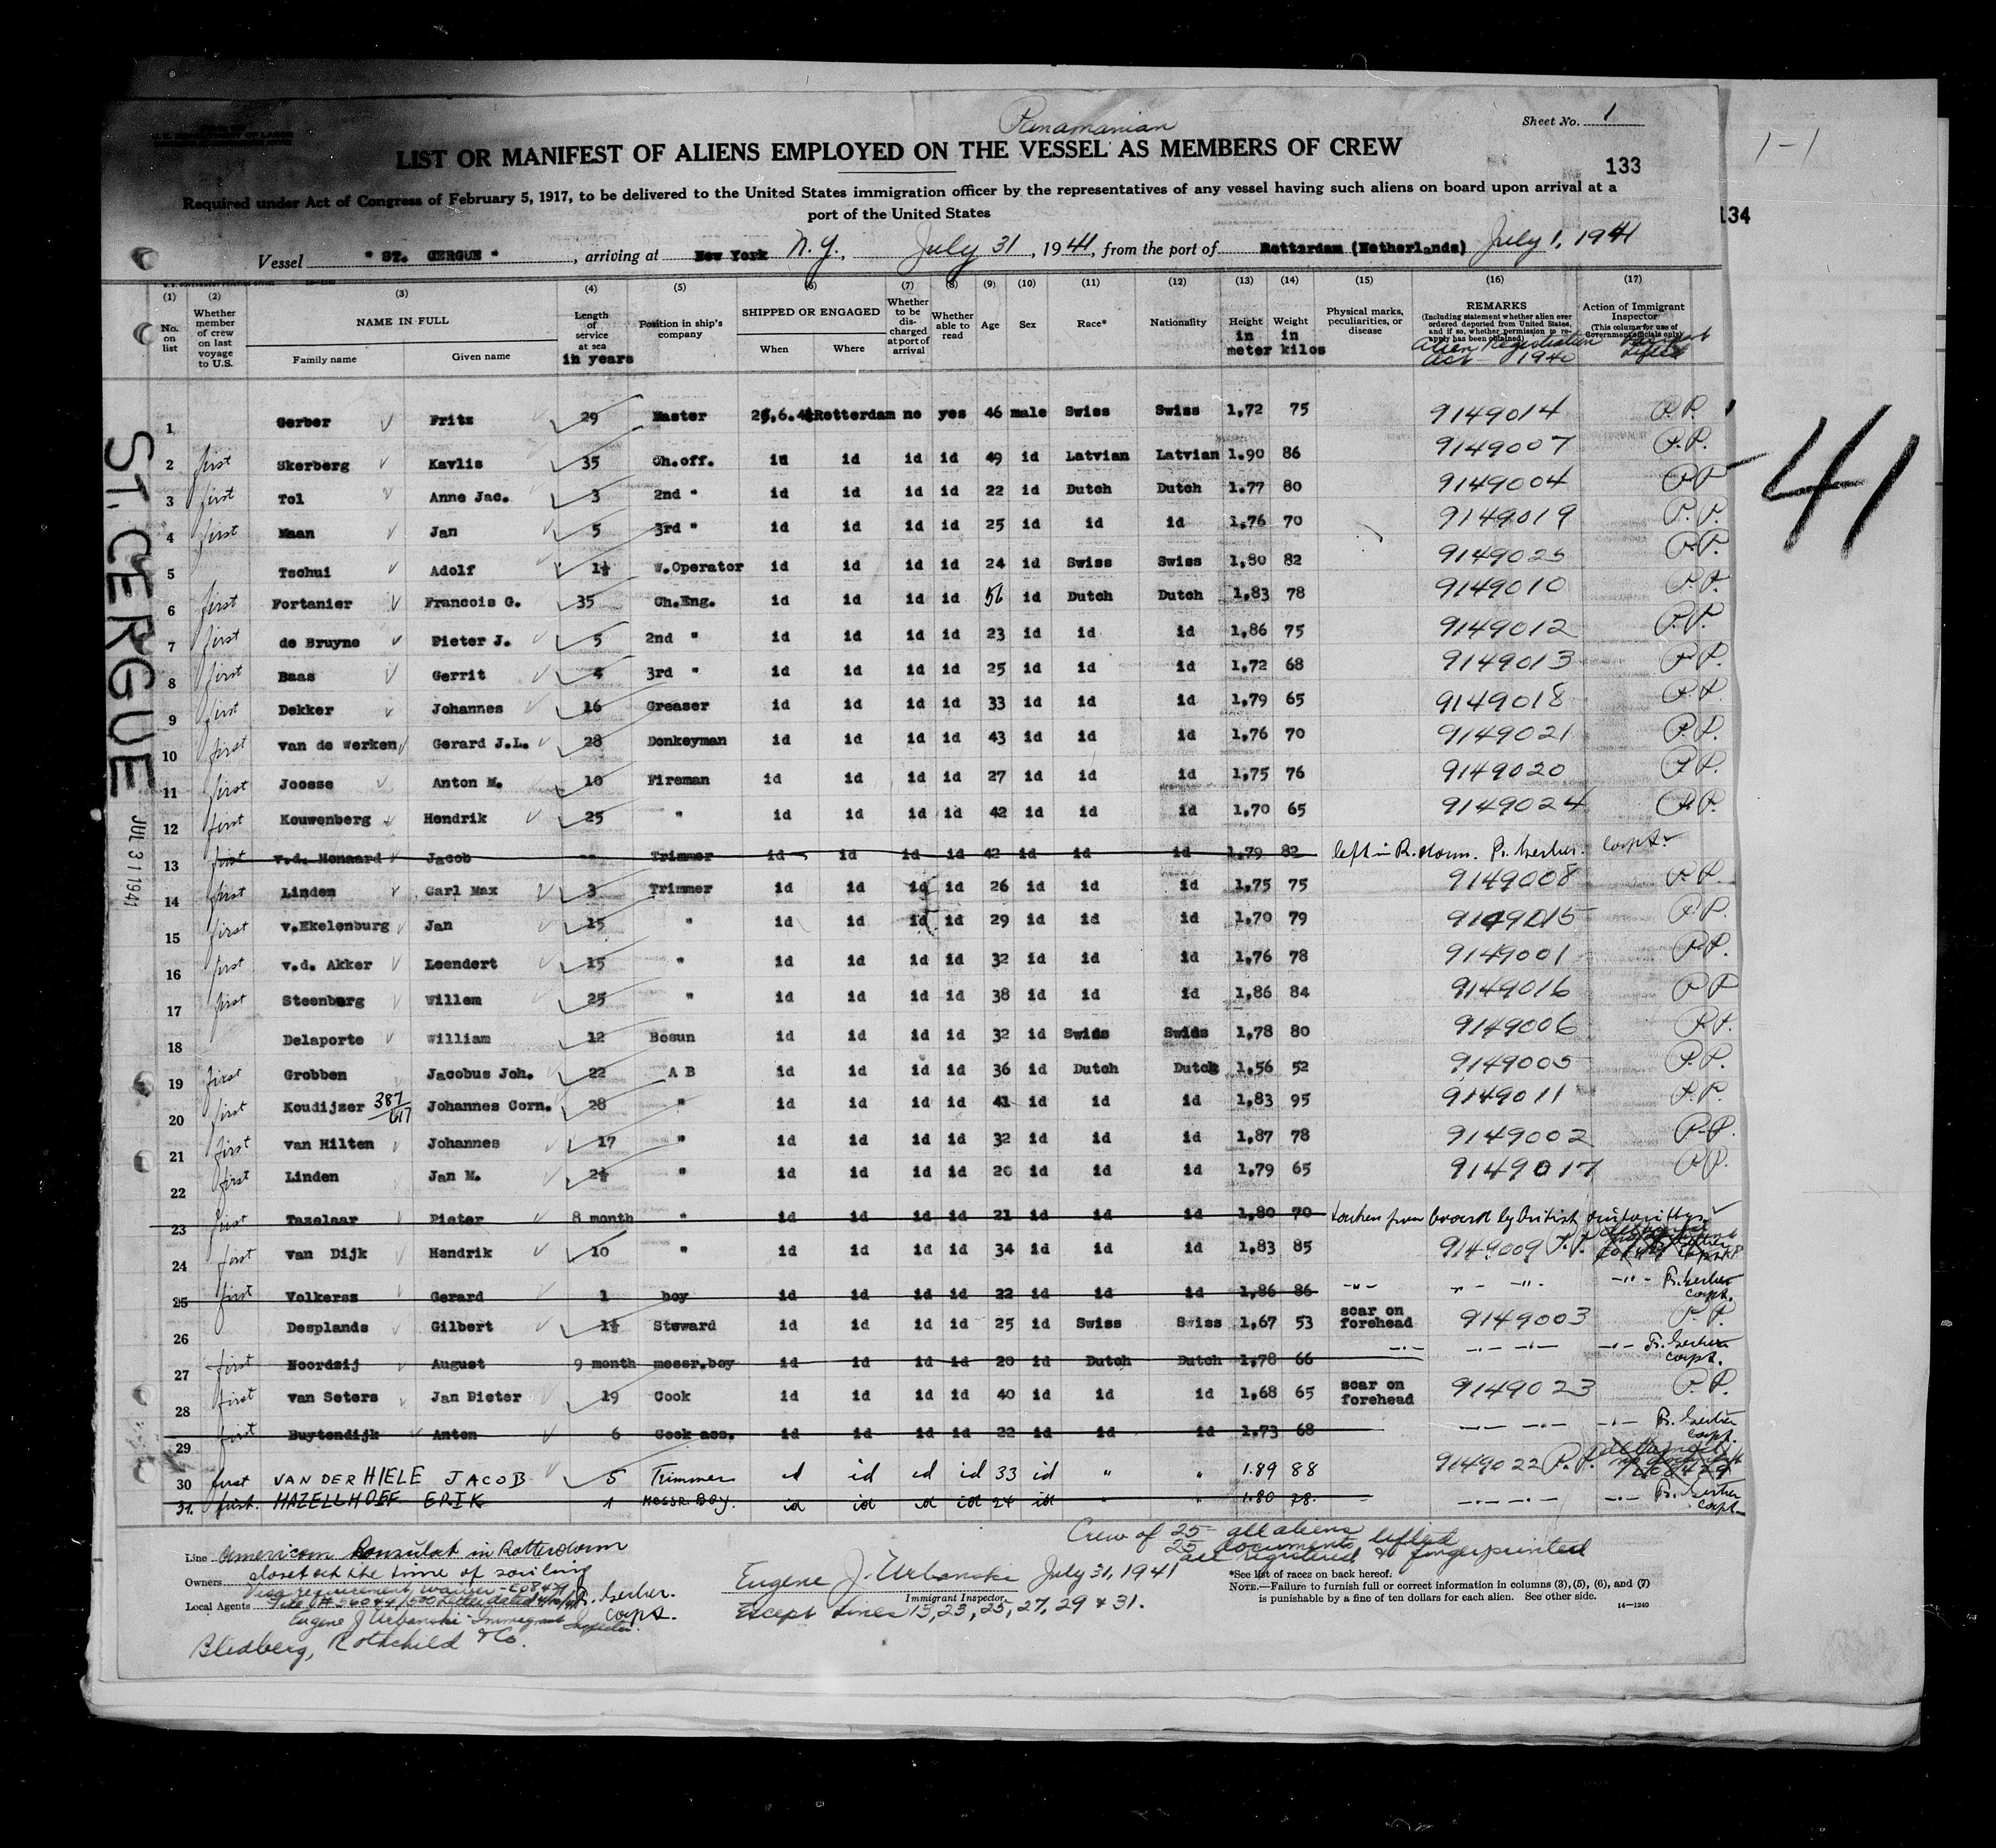 Panamanian
Sheet No. 1
1-1
LIST OR MANIFEST OF ALIENS EMPLOYED ON THE VESSEL AS MEMBERS OF CREW
133
Required under Act of Congress of February 5, 1917, to be delivered to the United States immigration officer by the representatives of any vessel having such aliens on board upon arrival at a
port of the United States
134
Vessel " ST. CERGUE ", arriving at New York N.Y., July 31, 1941, from the port of Rotterdam (Netherlands) July 1, 1941
(1) (2) (3) (4) (5) (6) (7) (8) (9) (10) (11) (12) (13) (14) (15) (16) (17)
No. on list
Whether member of crew on last voyage to U.S.
NAME IN FULL
Family name Given name
Length of service at sea in years
Position in ship's company
SHIPPED OR ENGAGED
When Where
Whether to be discharged at port of arrival
Whether able to read
Age
Sex
Race*
Nationality
Height in meter
Weight in kilos
Physical marks, peculiarities, or disease
REMARKS
(Including statement whether alien ever ordered deported from United States, and if so, whether permission to reapply has been obtained)
Alien Registration Act 1940
Action of Immigrant Inspector
(This column for use of Government officials only)
1 Gerber Fritz 29 Master Rotterdam no yes 46 male Swiss Swiss 1,72 75 9149014 P.P.
2 first Skerberg Kavlis 35 Ch.off. id id id id 49 id Latvian Latvian 1.90 86 9149007 P.P.
3 first Tol Anne Jac. 3 2nd " id id id id 22 id Dutch Dutch 1.77 80 9149004 P.P.
4 first Maan Jan 5 3rd " id id id id 25 id id id 1,76 70 9149019 P.P.
5 Tschui Adolf 1½ W.Operator id id id id 24 id Swiss Swiss 1,80 82 9149025 P.P.
6 first Fortanier Francois G. 35 Ch.Eng. id id id id 56 id Dutch Dutch 1,83 78 9149010 P.P.
7 first de Bruyne Pieter J. 5 2nd " id id id id 23 id id id 1,86 75 9149012 P.P.
8 first Baas Gerrit 4 3rd " id id id id 25 id id id 1,72 68 9149013 P.P.
9 first Dekker Johannes 16 Greaser id id id id 33 id id id 1,79 65 9149018 P.P.
10 first van de Werken Gerard J.L. 28 Donkeyman id id id id 43 id id id 1,76 70 9149021 P.P.
11 first Joosse Anton M. 10 Fireman id id id id 27 id id id 1,75 76 9149020 P.P.
12 first Kouwenberg Hendrik 25 " id id id id 42 id id id 1,70 65 9149024 P.P.
13 first v.d. Honaard Jacob -- Trimmer id id id id 42 id id id 1,79 82 left in R.damm. Fr. Gerber. capt.
14 first Linden Carl Max 3 Trimmer id id id id 26 id id id 1,75 75 9149008 P.P.
15 first v.Ekelenburg Jan 15 " id id id id 29 id id id 1,70 79 9149015 P.P.
16 first v.d. Akker Leendert 15 " id id id id 32 id id id 1,76 78 9149001 P.P.
17 first Steenberg Willem 25 " id id id id 38 id id id 1,86 84 9149016 P.P.
18 Delaporte William 12 Bosun id id id id 32 id Swiss Swiss 1,78 80 9149006 P.P.
19 first Grobben Jacobus Joh. 22 A B id id id id 36 id Dutch Dutch 1,56 52 9149005 P.P.
20 first Koudijzer 387/617 Johannes Corn. 28 " id id id id 41 id id id 1,83 95 9149011 P.P.
21 first van Hilten Johannes 17 " id id id id 32 id id id 1,87 78 9149002 P.P.
22 first Linden Jan M. 2½ " id id id id 20 id id id 1,79 65 9149017 P.P.
23 first Tazelaar Pieter 8 month " id id id id 21 id id id 1,80 70 taken from board by British
24 first van Dijk Hendrik 10 " id id id id 34 id id id 1,83 85 9149009 P.P.
25 first Volkersz Gerard 1 boy id id id id 22 id id id 1,86 86 -"- -"- -"- Fr. Gerber capt.
26 Desplands Gilbert 1½ Steward id id id id 25 id Swiss Swiss 1,67 53 scar on forehead 9149003 P.P.
27 first Noordzij August 9 month messr.boy id id id id 20 id Dutch Dutch 1,78 66 -"- -"- -"- Fr. Gerber capt.
28 first van Seters Jan Pieter 19 Cook id id id id 40 id id id 1,68 65 scar on forehead 9149023 P.P.
29 first Buytendijk Anton 6 Cook ass. id id id id 22 id id id 1.73 68 -"- -"- Fr. Gerber capt.
30 first VAN DER HIELE JACOB 5 Trimmer id id id id 33 id " " 1.89 88 9149022 P.P.
31. first. HAZELHOFF ERIK 1 MESSR. BOY. id id id id 24 id " " 1.80 78. -"- -"- Fr. Gerber capt.
ST. CERGUE
JUL 31 1941
41
Crew of 25 all aliens
25 documents lifted
all registered & fingerprinted
Line American Consulat in Rotterdam
closet at the time of sailing
Owners
Local Agents
Fr. Gerber. capt.
Eugene J. Urbanski - Immigrant Inspector.
Bledberg, Rothchild & Co.
Eugene J. Urbanski July 31, 1941
Immigrant Inspector
Except Lines 13, 23, 25, 27, 29 & 31.
*See list of races on back hereof.
NOTE.—Failure to furnish full or correct information in columns (3), (5), (6), and (7)
is punishable by a fine of ten dollars for each alien. See other side.
14—1240